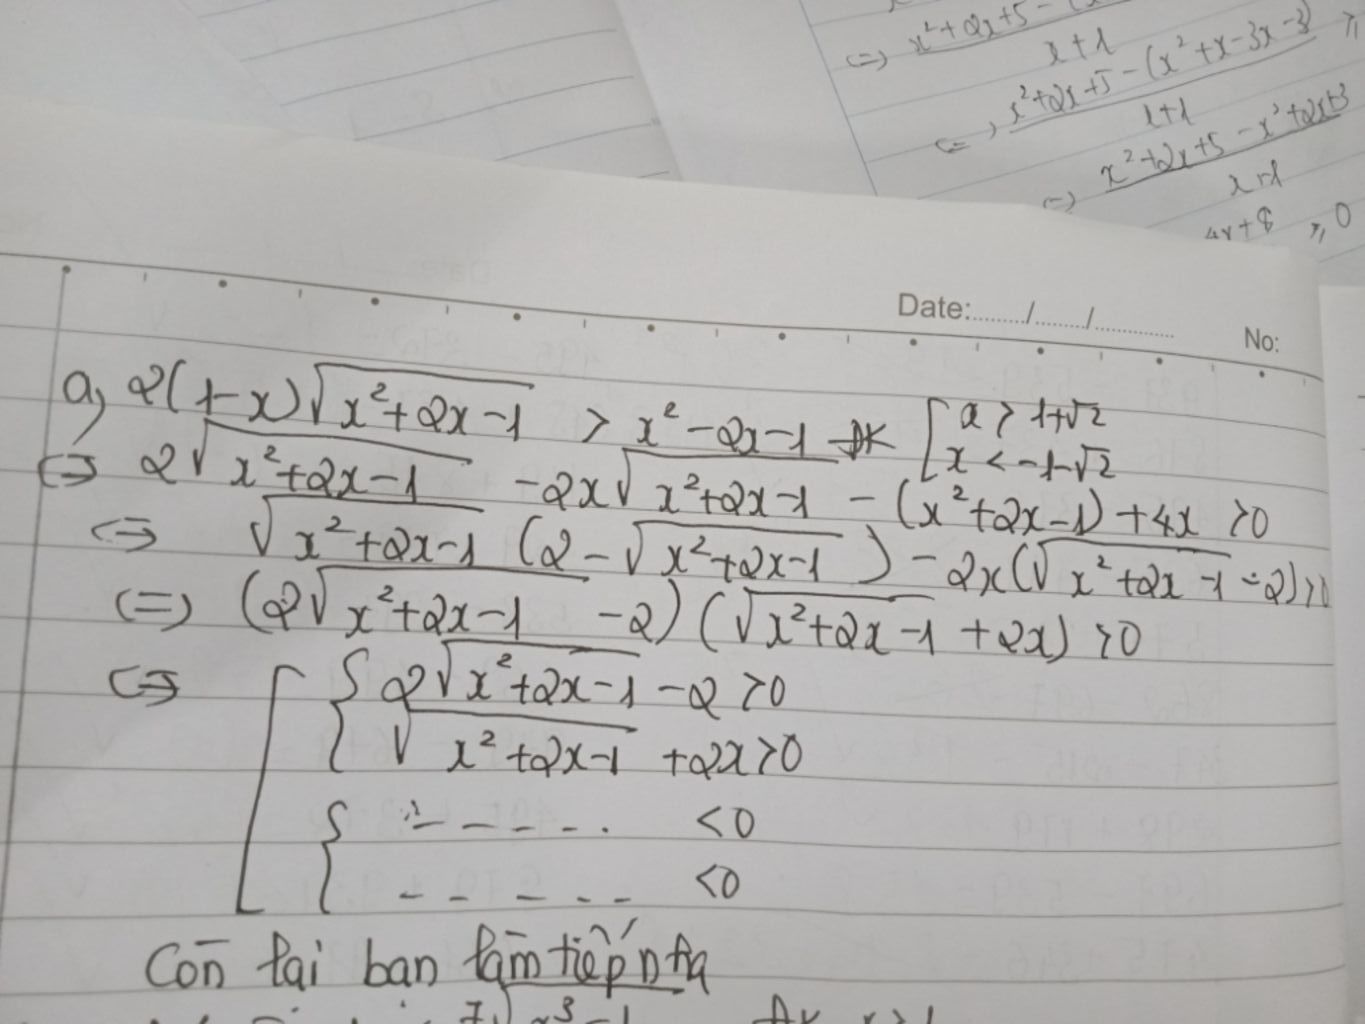 ⇔ x²+2x+5 - (
x+1
⇔ x²+2x+5-(x²+x-3x-3) ≥
x+1
⇔ x²+2x+5-x²+2x+3
x+1
4x+8 ≥ 0
Date:......../......../...............
No:
a, 2(1-x)√(x²+2x-1) > x²-2x-1 ĐK [ x > 1+√2
[ x < -1-√2
⇔ 2√(x²+2x-1) - 2x√(x²+2x-1) - (x²+2x-1) + 4x > 0
⇔ √(x²+2x-1) (2-√(x²+2x-1)) - 2x(√(x²+2x-1) - 2) > 0
(=) (2√(x²+2x-1) - 2) (√(x²+2x-1) + 2x) > 0
⇔ [ { 2√(x²+2x-1) - 2 > 0
√(x²+2x-1) + 2x > 0
{ - - - - . < 0
- - - - - < 0
Còn lại bạn làm tiếp nha